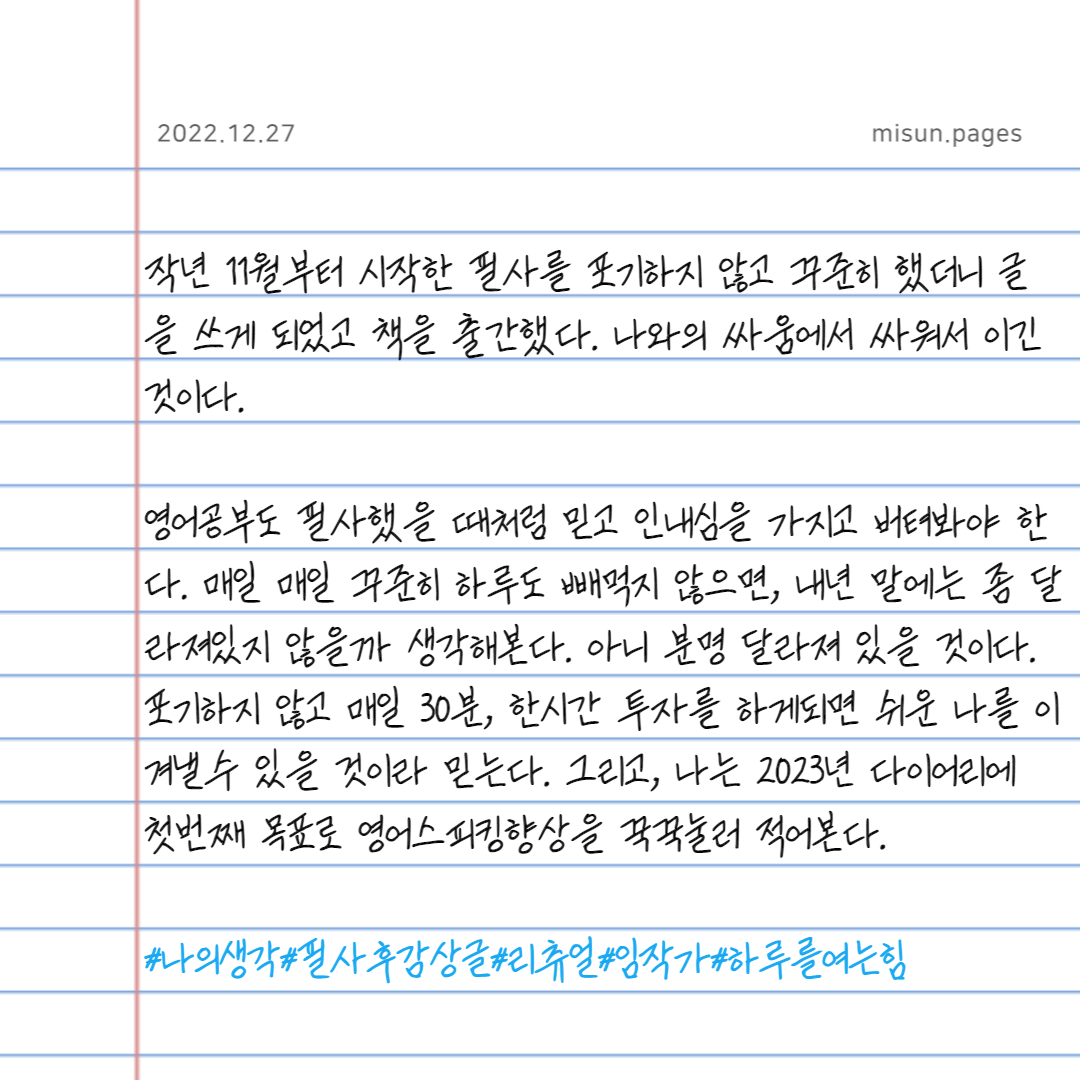 2022.12.27
misun.pages
작년 11월부터 시작한 필사를 포기하지 않고 꾸준히 했더니 글
을 쓰게 되었고 책을 출간했다. 나와의 싸움에서 싸워서 이긴
것이다.
영어공부도 필사했을 때처럼 믿고 인내심을 가지고 버텨봐야 한
다. 매일 매일 꾸준히 하루도 빼먹지 않으면, 내년 말에는 좀 달
라져있지 않을까 생각해본다. 아니 분명 달라져 있을 것이다.
포기하지 않고 매일 30분, 한시간 투자를 하게되면 쉬운 나를 이
겨낼수 있을 것이라 믿는다. 그리고, 나는 2023년 다이어리에
첫번째 목표로 영어스피킹향상을 꾹꾹눌러 적어본다.
#나의생각#필사후감상글#리츄얼#임작가#하루를여는힘